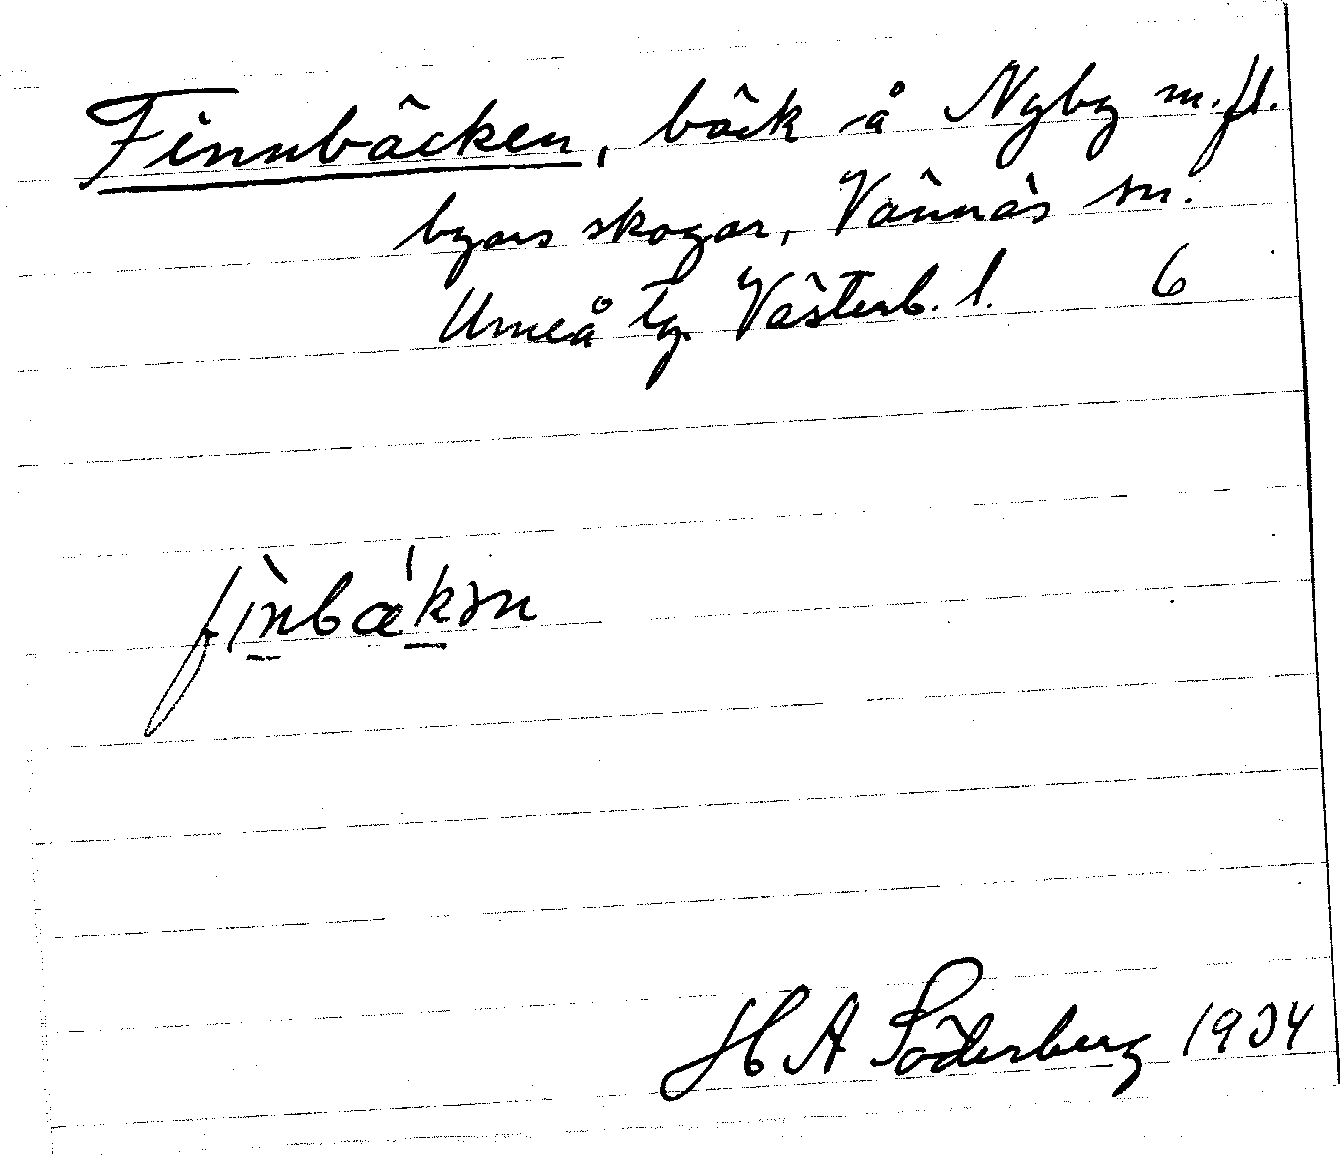 Finnbäcken, bäck å Nyby m.fl.
byars skogar, Vännäs sn.
Umeå tg. Västerb. l. 6
fìnbǽkən
H A Söderberg 1934